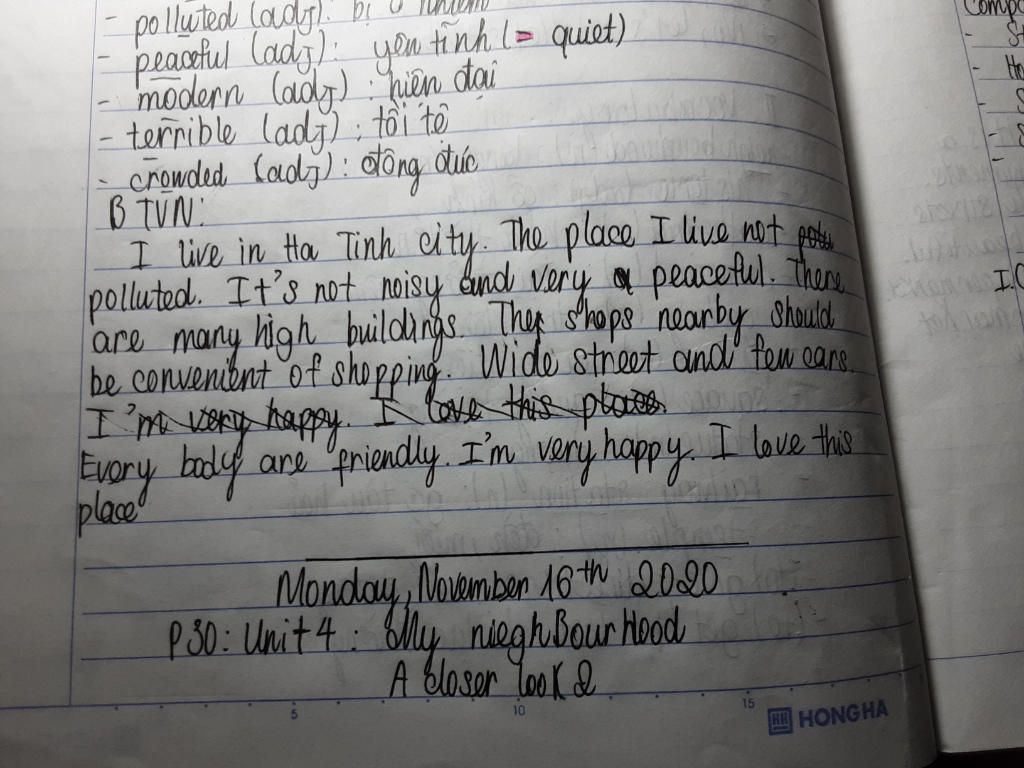 - polluted (adj): bị ô nhiễm
- peaceful (adj): yên tĩnh (= quiet)
- modern (adj): hiện đại
- terrible (adj): tồi tệ
- crowded (adj): đông đúc
BTVN:
I live in Ha Tinh city. The place I live not
polluted. It's not noisy and very peaceful. There
are many high buildings. The shops nearby should
be convenient of shopping. Wide street and few cars.
I'm very happy. I love this place.
Every body are friendly. I'm very happy. I love this
place
Monday, November 16th 2020
P30: Unit 4: My nieghBourHood
A closer look 2
5 10 15
HONG HA
I.